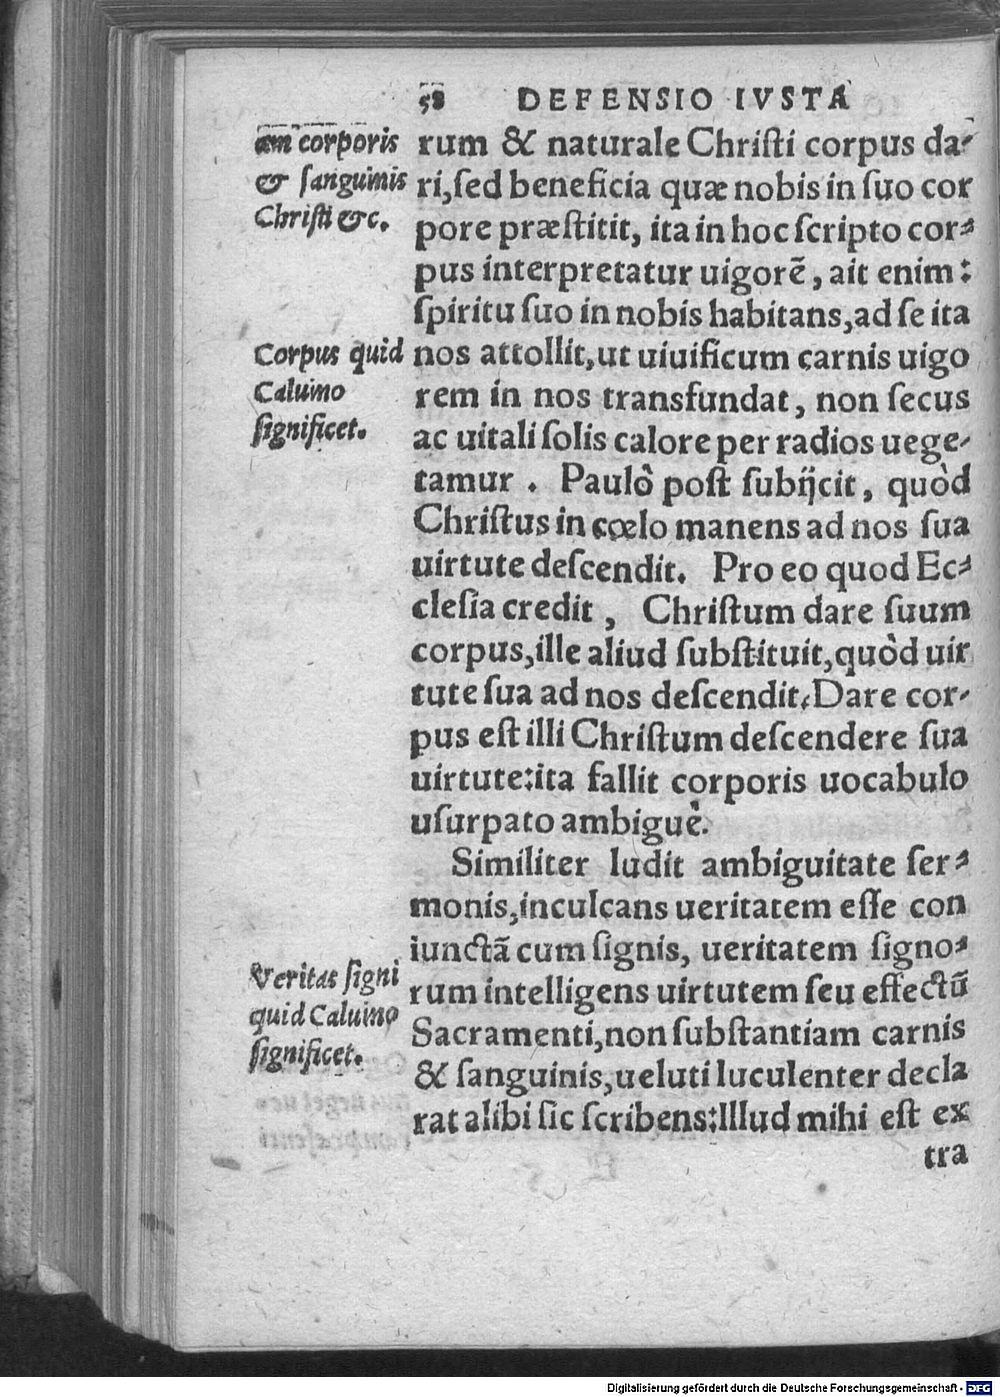 58 DEFENSIO IVSTA
am corporis
& sanguinis
Christi &c.
rum & naturale Christi corpus da-
ri, sed beneficia quæ nobis in suo cor
pore præstitit, ita in hoc scripto cor-
pus interpretatur uigorẽ, ait enim:
spiritu suo in nobis habitans, ad se ita
Corpus quid
Caluino
significet.
nos attollit, ut uiuificum carnis uigo
rem in nos transfundat, non secus
ac uitali solis calore per radios uege-
tamur. Paulò post subijcit, quòd
Christus in cœlo manens ad nos sua
uirtute descendit. Pro eo quod Ec-
clesia credit, Christum dare suum
corpus, ille aliud substituit, quòd uir
tute sua ad nos descendit. Dare cor-
pus est illi Christum descendere sua
uirtute: ita fallit corporis uocabulo
usurpato ambiguè.
Similiter ludit ambiguitate ser-
monis, inculcans ueritatem esse con
iunctã cum signis, ueritatem signo-
Veritas signi
quid Caluino
significet.
rum intelligens uirtutem seu effectũ
Sacramenti, non substantiam carnis
& sanguinis, ueluti luculenter decla
rat alibi sic scribens: Illud mihi est ex
tra
Digitalisierung gefördert durch die Deutsche Forschungsgemeinschaft - DFG